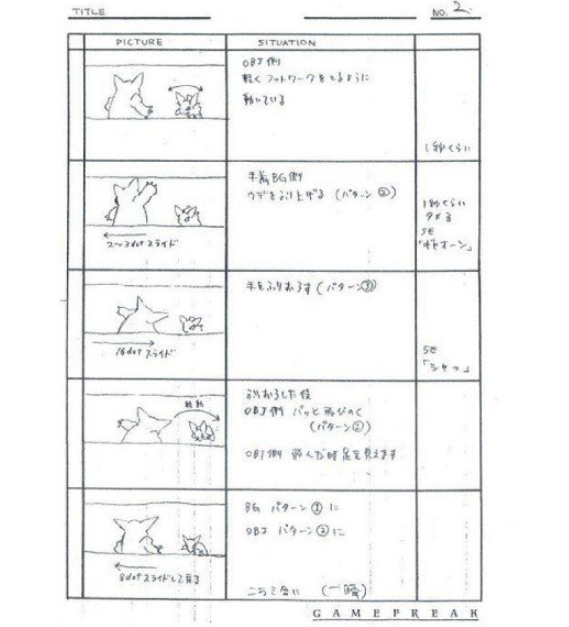 TITLE
NO. 2.
PICTURE
SITUATION
OBJ側
軽くフットワークをとるように
動いている
1秒くらい
手前BG側
ウデをふり上げる (パターン②)
1秒くらい
タメる
SE
「ギャオーン」
2〜3dotスライド
手をふりおろす (パターン③)
16dotスライド
SE
「シャッ」
ふりおろした後
OBJ側 パッと飛びのく
(パターン②)
移動
OBJ側 飛んだ時足を見えます
BG パターン①に
OBJ パターン②に
8dotスライドして戻る
ニラミ合い (一瞬)
GAMEFREAK